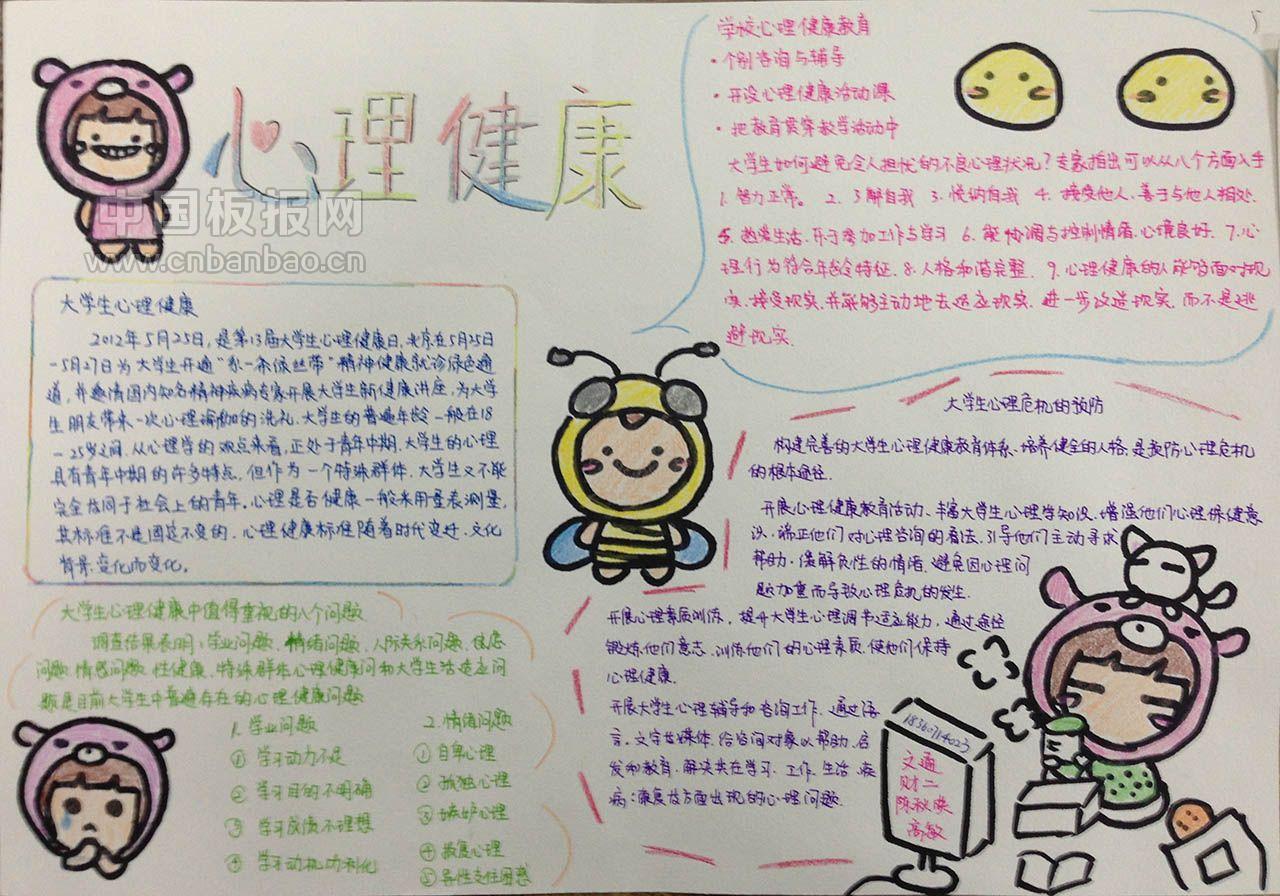 心理健康
中国板报网
www.cnbanbao.cn
5
学校心理健康教育
·个别咨询与辅导
·开设心理健康活动课
·把教育贯穿教学活动中
大学生如何避免令人担忧的不良心理状况?专家指出可以从八个方面入手
1.智力正常。 2.了解自我 3.悦纳自我 4.接受他人,善于与他人相处.
5.热爱生活.乐于参加工作与学习 6.能协调与控制情绪.心境良好. 7.心
理行为符合年龄特征.8.人格和谐完整. 9.心理健康的人能够面对现
实.接受现实.并能够主动地去适应现实.进一步改造现实.而不是逃
避现实.
大学生心理健康
2012年5月25日,是第13届大学生心理健康日.北京在5月25日
-5月27日为大学生开通“系一条绿丝带”精神健康就诊绿色通
道,并邀请国内知名精神疾病专家开展大学生新健康讲座.为大学
生朋友带来一次心理瑜伽的洗礼.大学生的普遍年龄一般在18
-25岁之间.从心理学的观点来看,正处于青年中期.大学生的心理
具有青年中期的许多特点.但作为一个特殊群体.大学生又不能
完全放同于社会上的青年.心理是否健康一般采用量表测量,
其标准不是固定不变的.心理健康标准随着时代变迁.文化
背景变化而变化。
大学生心理危机的预防
构建完善的大学生心理健康教育体系.培养健全的人格.是预防心理危机
的根本途径.
开展心理健康教育活动、丰富大学生心理学知识、增强他们心理保健意
识、端正他们对心理咨询的看法.引导他们主动寻求
帮助、缓解负性的情绪、避免因心理问
题加重而导致心理危机的发生.
开展心理素质训练,提升大学生心理调节适应能力,通过途径
锻炼他们意志.训练他们的心理素质.使他们保持
心理健康.
开展大学生心理辅导和咨询工作.通过语
言、文字等媒体.给咨询对象以帮助、启
发和教育.解决其在学习、工作、生活、疾
病:康复等方面出现的心理问题.
大学生心理健康中值得重视的八个问题
调查结果表明:学业问题、情绪问题、人际关系问题、焦虑
问题.情感问题.性健康、特殊群体心理健康问和大学生活适应问
题是目前大学生中普遍存在的心理健康问题
1.学业问题
①学习动力不足
②学习目的不明确
③学习成绩不理想
④学习动机功利化
2.情绪问题
①自卑心理
②孤独心理
③嫉妒心理
④
⑤异性交往困惑
文通
财二
高敏